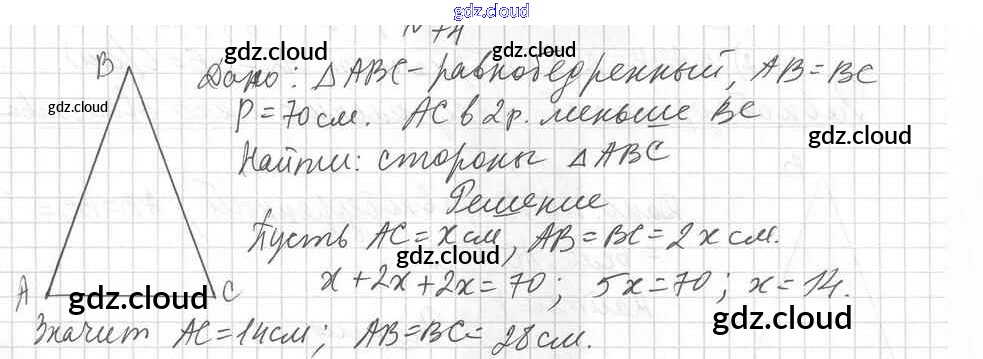 gdz.cloud
№ 74
gdz.cloud gdz.cloud
B Дано: △ABC - равнобедренный, AB = BC
gdz.cloud
P = 70 см. AC в 2 р. меньше BC
gdz.cloud
Найти: стороны △ABC
Решение
Пусть AC = x см, AB = BC = 2x см.
gdz.cloud
x + 2x + 2x = 70; 5x = 70; x = 14.
A C
gdz.cloud gdz.cloud
Значит AC = 14 см; AB = BC = 28 см.